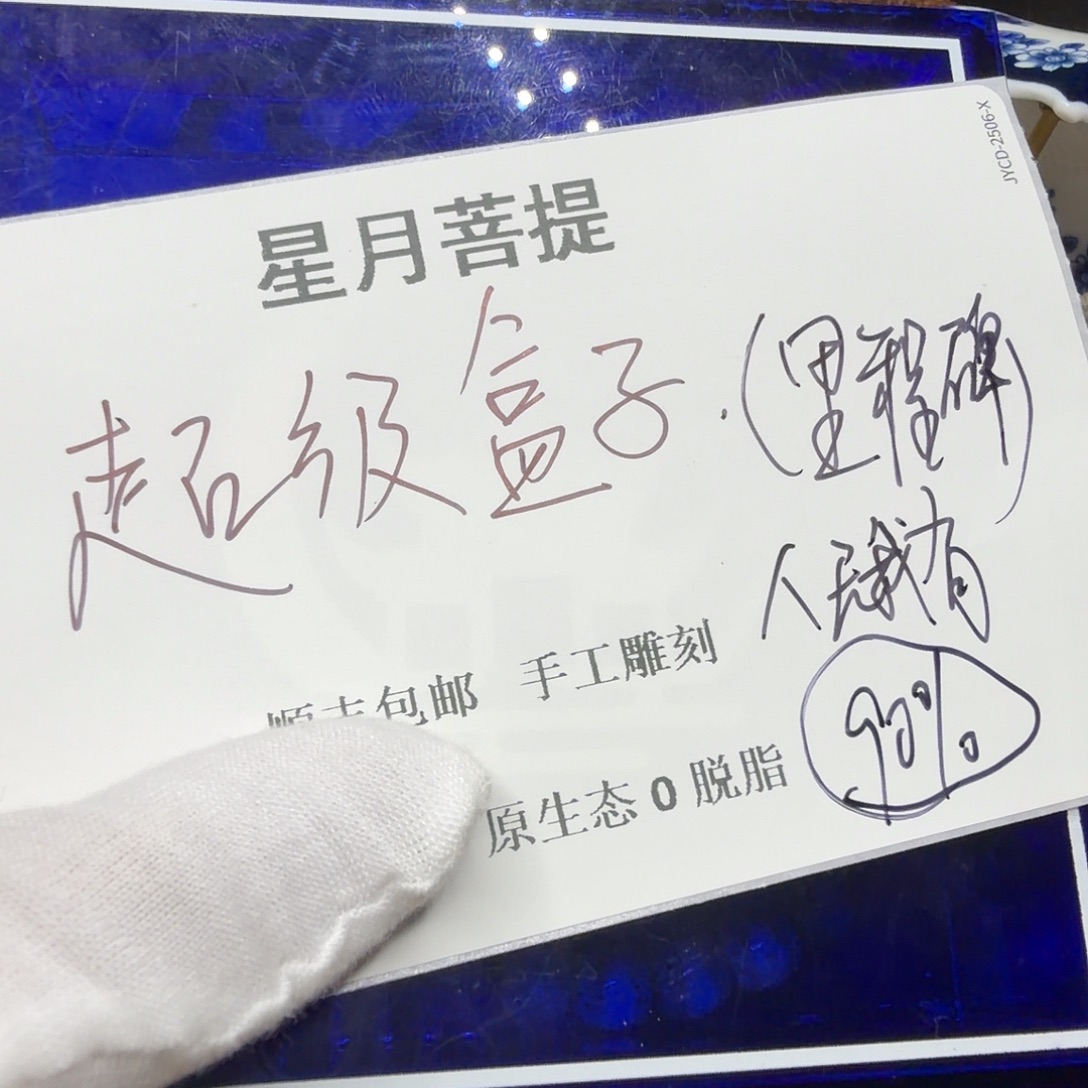 JYCD-2506-X
星月菩提
超级盒子.(里程碑)
人无我有
90%
顺丰包邮 手工雕刻
原生态0脱脂